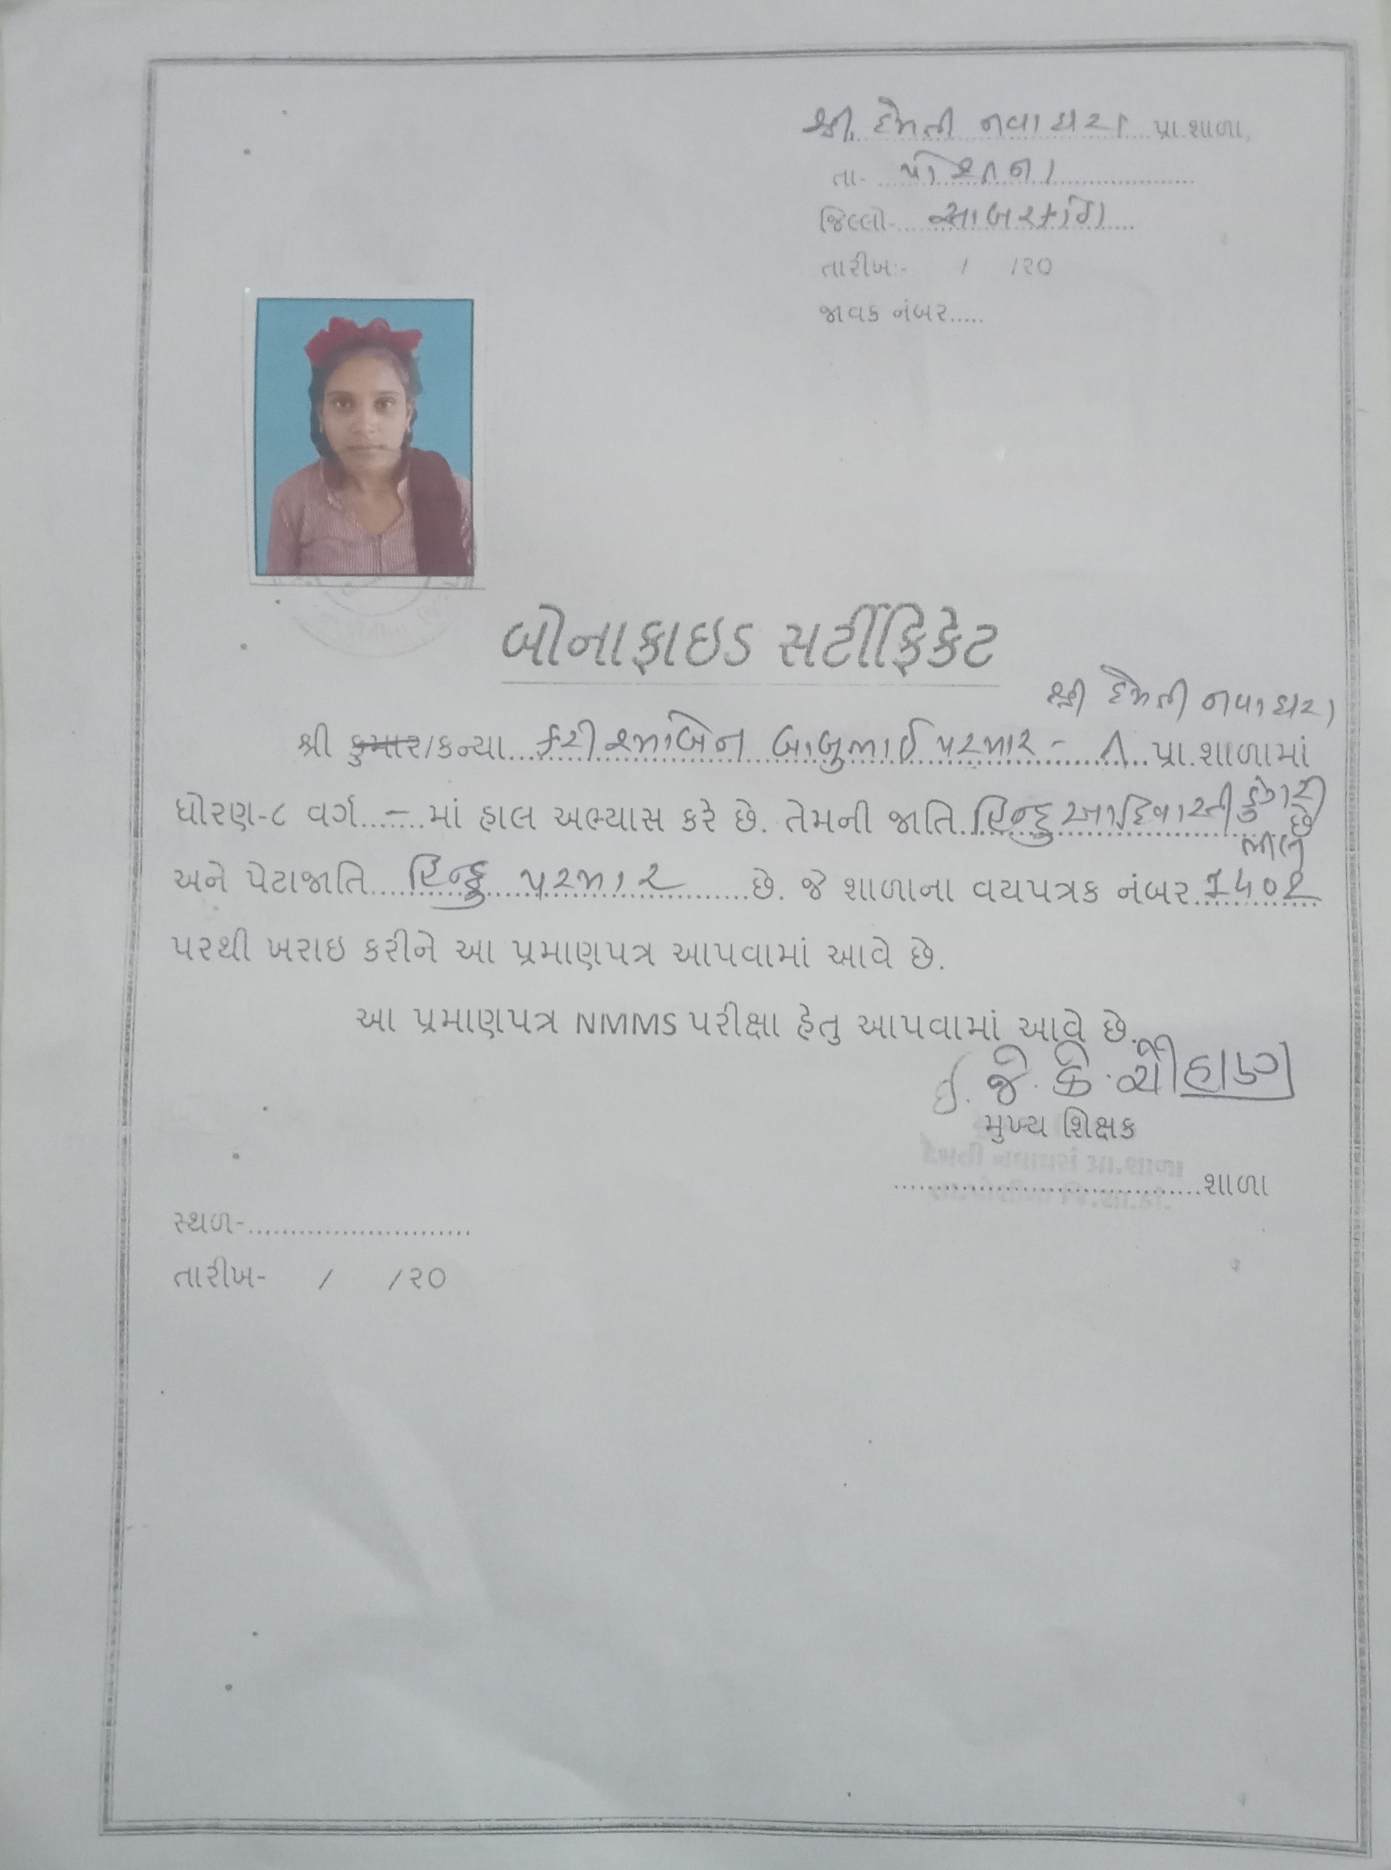 શ્રી. દેમતી નવાઘરા પ્રા.શાળા,
તા- પોશીના
જિલ્લો- સાબરકાંઠા
તારીખ:- / /૨૦
જાવક નંબર.....
બોનાફાઇડ સર્ટીફિકેટ
શ્રી દેમતી નવાઘરા
શ્રી કુમાર/કન્યા કરીશ્માબેન બાબુભાઈ પરમાર - પ્રા.શાળામાં
ધોરણ-૮ વર્ગ - માં હાલ અભ્યાસ કરે છે. તેમની જાતિ હિન્દુ આદિવાસી ડુંગરી ભીલ છે
અને પેટાજાતિ હિન્દુ પરમાર છે. જે શાળાના વયપત્રક નંબર
પરથી ખરાઇ કરીને આ પ્રમાણપત્ર આપવામાં આવે છે.
આ પ્રમાણપત્ર NMMS પરીક્ષા હેતુ આપવામાં આવે છે.
ઈ. જે. કે. ચૌહાણ
મુખ્ય શિક્ષક
શાળા
સ્થળ-
તારીખ- / /૨૦